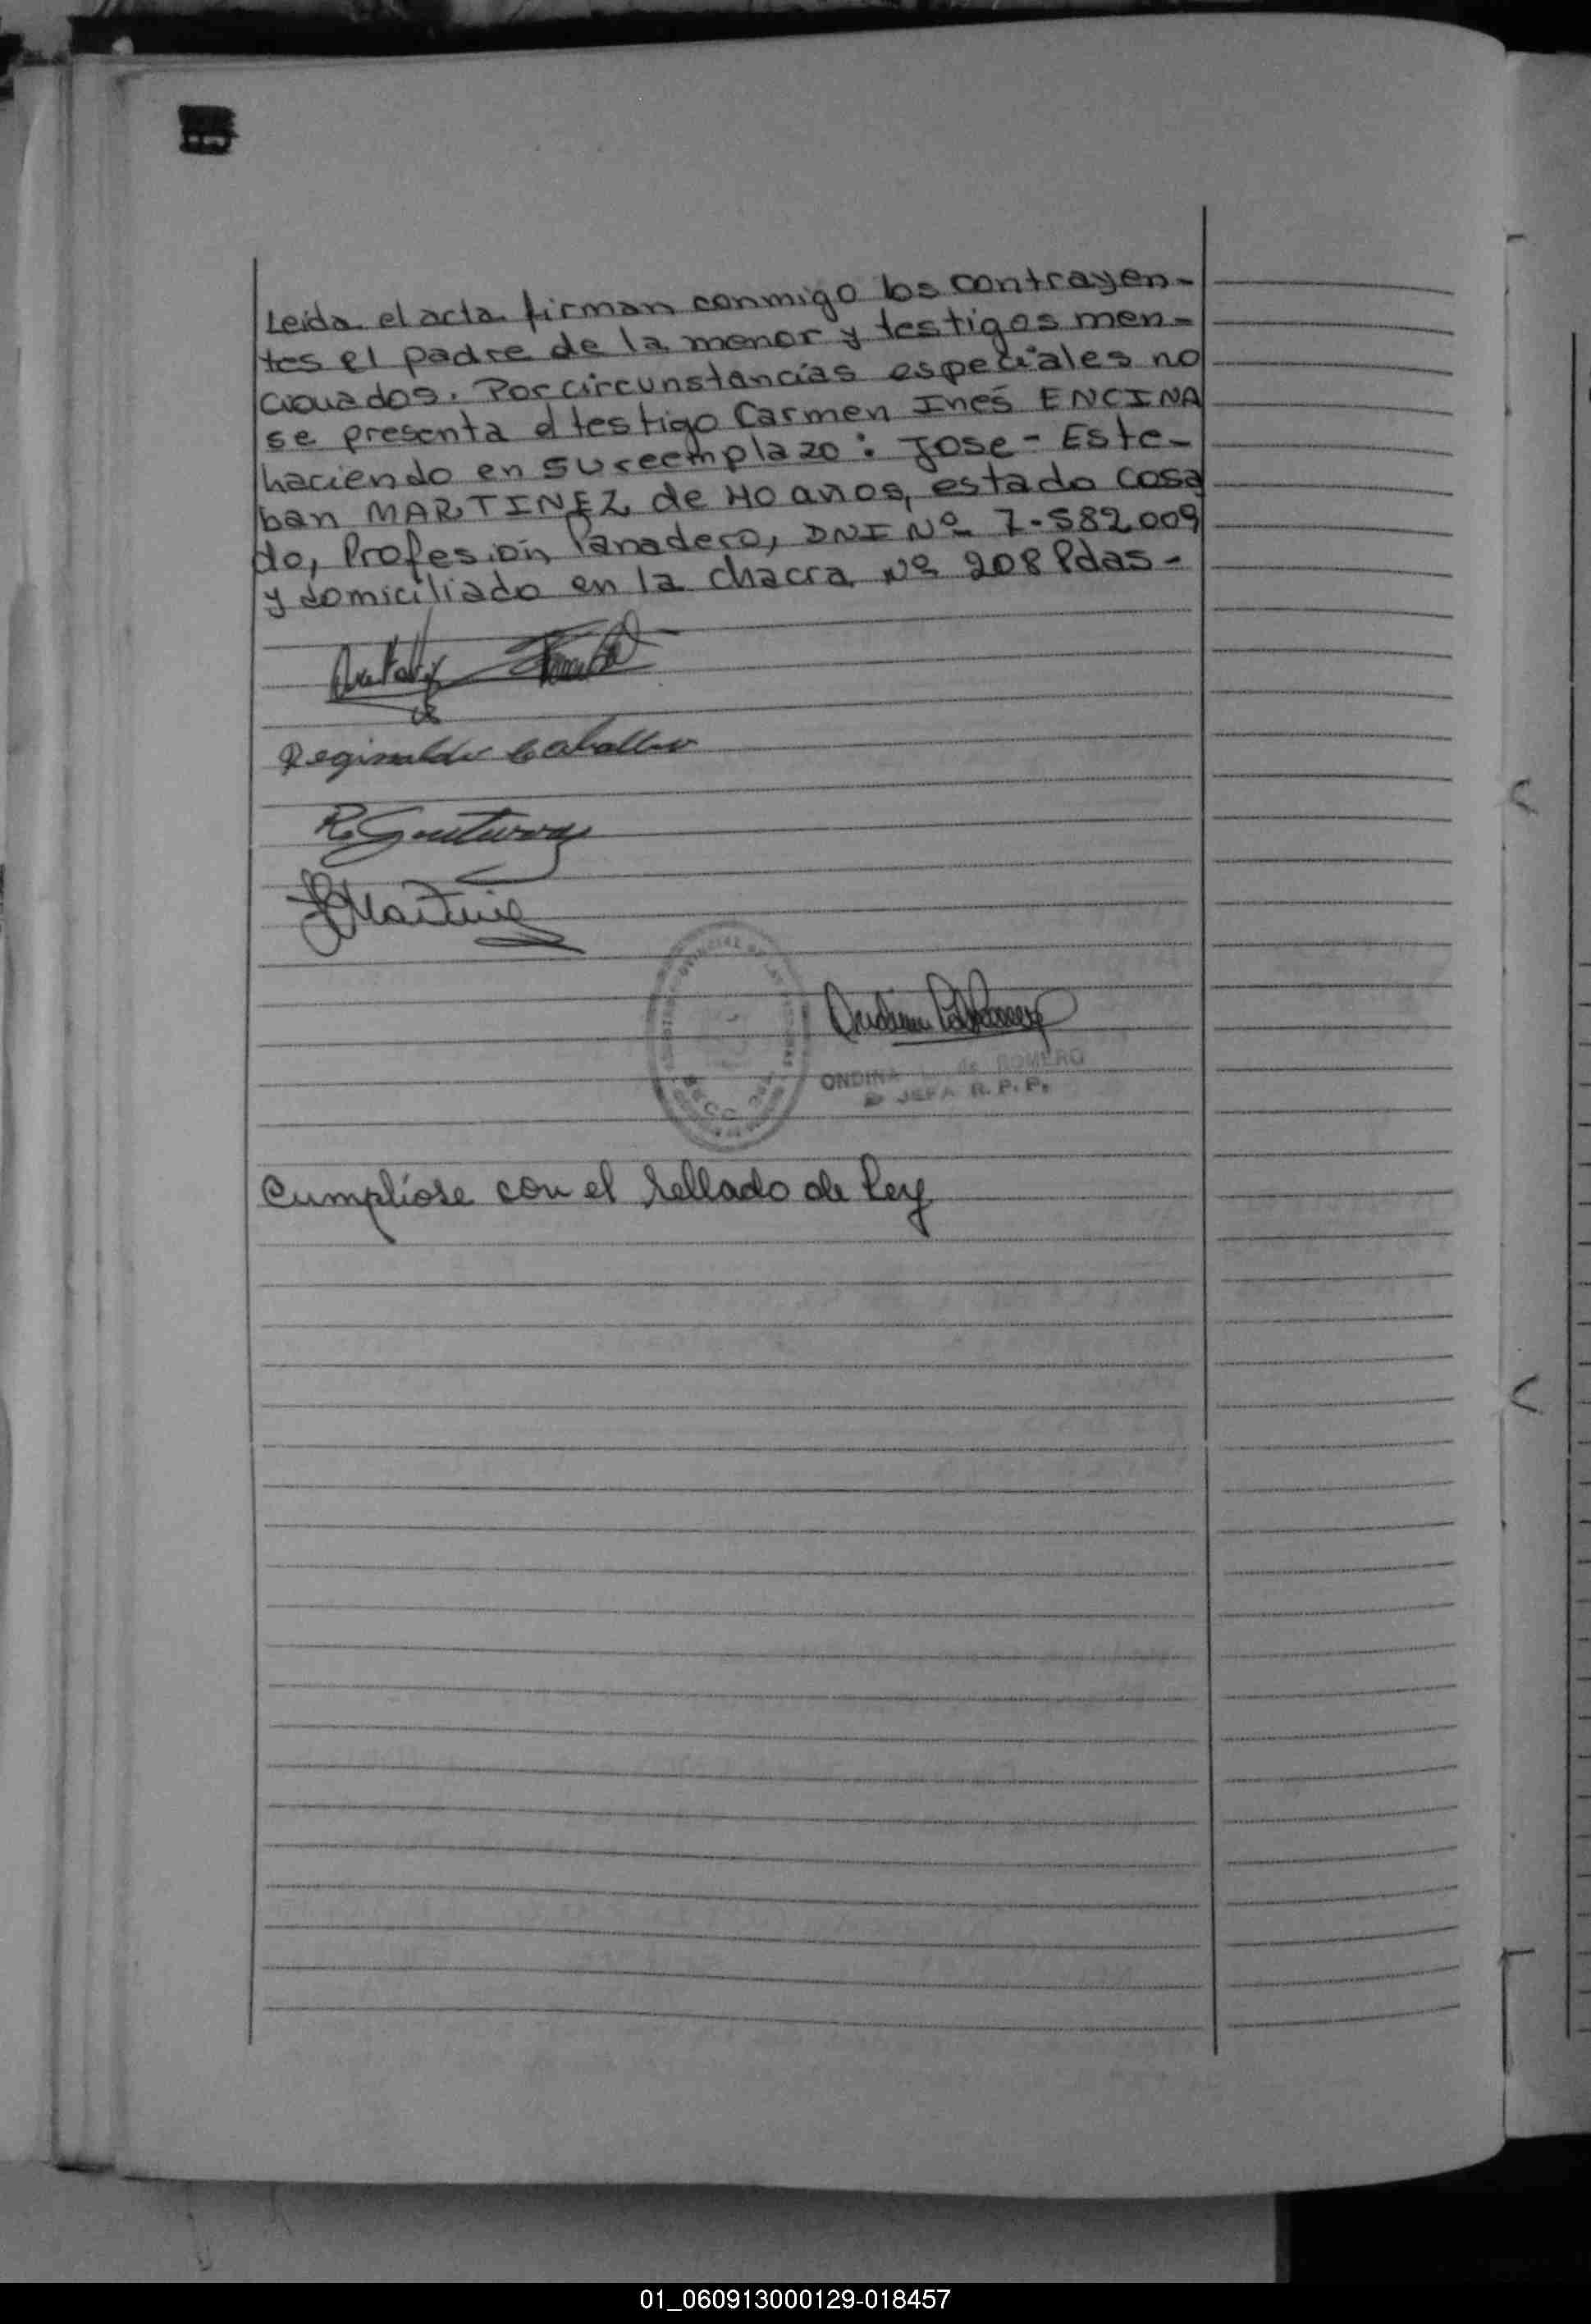 Leida el acta firman conmigo los contrayen-
tes el padre de la menor y testigos men-
cionados. Por circunstancias especiales no
se presenta el testigo Carmen Inés ENCINA
haciendo en su reemplazo: Jose-Este-
ban MARTINEZ de 40 años, estado casa
do, Profesión Panadero, DNI Nº 7.582.009
y domiciliado en la chacra Nº 208 Pdas-
Reginaldo Caballero
R. Gutierrez
J Martinez
ONDINA de ROMERO
JEFA R.P.P.
Cumpliose con el sellado de Ley
01_060913000129-018457